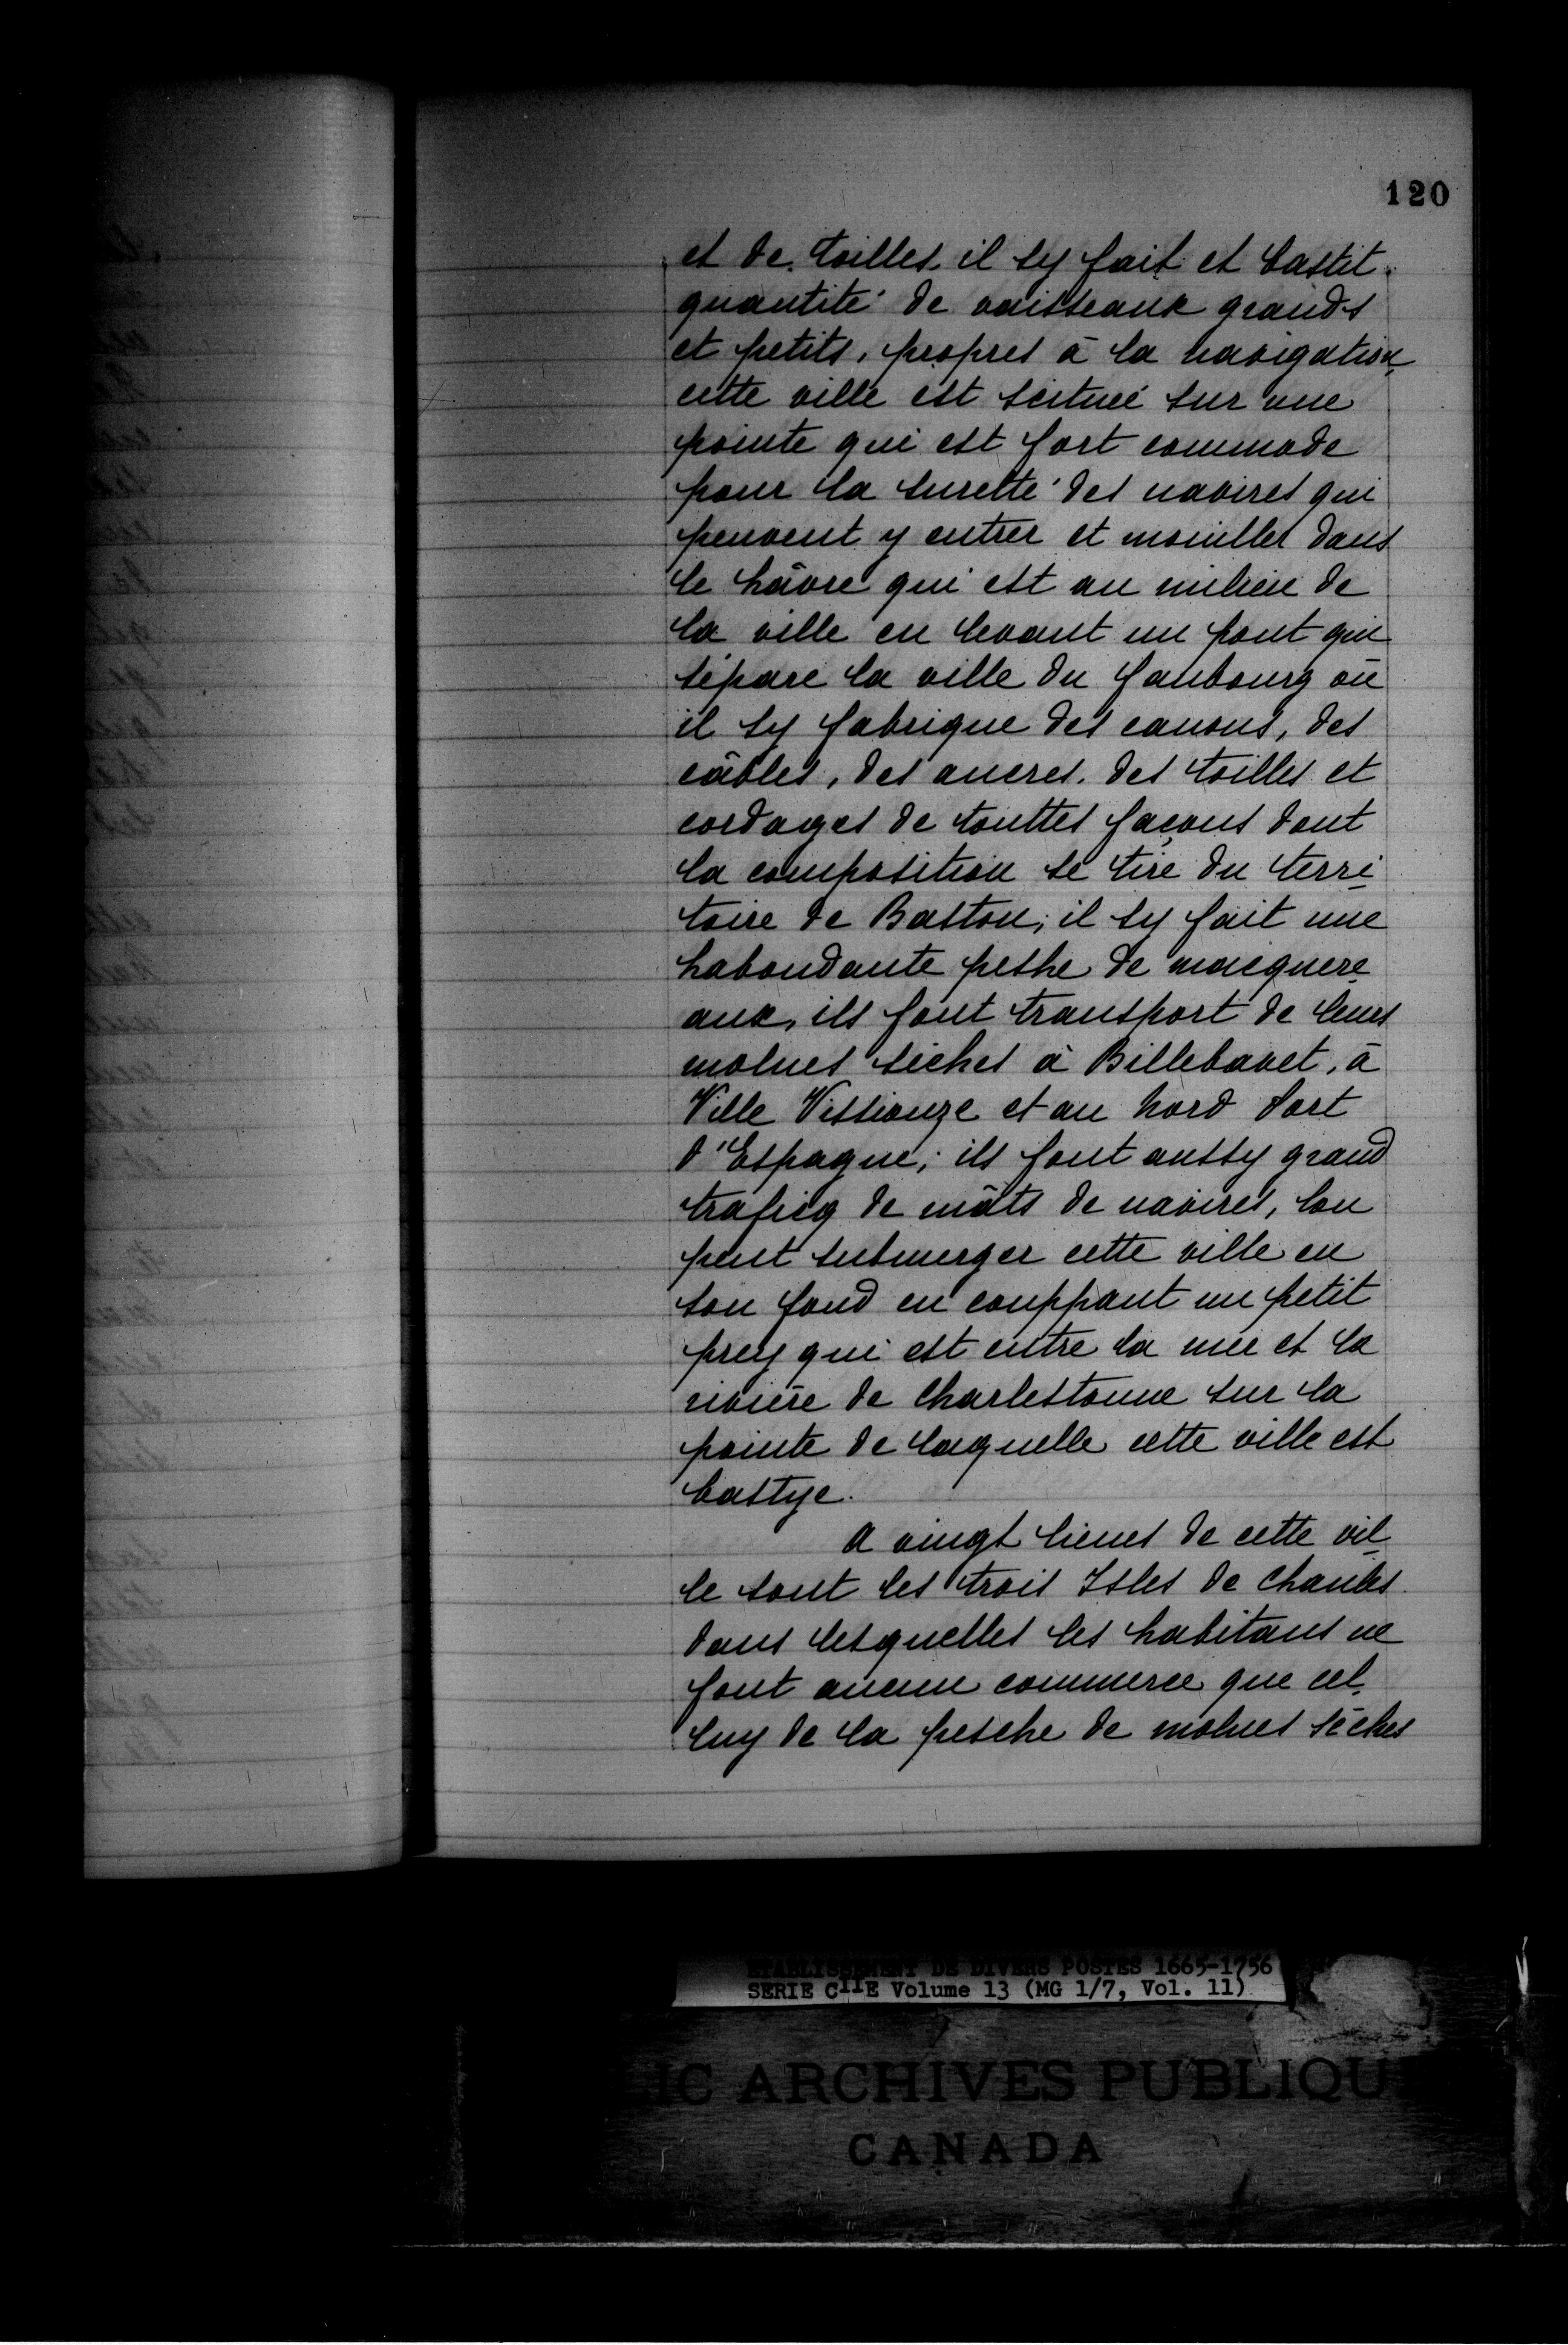 120
et de toilles. il sy fait et bastit
quantité de vaisseaux grands
et petits, propres à la navigation
cette ville est scitueé sur une
pointe qui est fort commode
pour la sureté des navires qui
peuvent y entrer et mouiller dans
le hâvre qui est au milieu de
la ville en levant un pont qui
sépare la ville du faubourg où
il sy fabrique des canons, des
câbles, des ancres, des toilles et
cordages de touttes façons dont
la composition se tire du terri
toire de Baston; il sy fait une
habondante peshe de macquere
aux, ils font transport de leurs
molues sèches à Billebavet, à
Ville Vissionze et au hord Port
d'Espagne; ils font aussy grand
traficq de mâts de navires, lon
peut submerger cette ville en
son fond en couppant un petit
prey qui est entre la mer et la
rivière de Charlestonne sur la
pointe de laquelle cette ville est
bastye.
A vingt lieues de cette vil
le sont les trois Isles de Chanles
dans lesquelles les habitans ne
font aucun commerce que cel
luy de la pesche de molues sèches
ETABLISSEMENT DE DIVERS POSTES 1665-1756
SERIE CIIE Volume 13 (MG 1/7, Vol. 11)
IC ARCHIVES PUBLIQU
CANADA